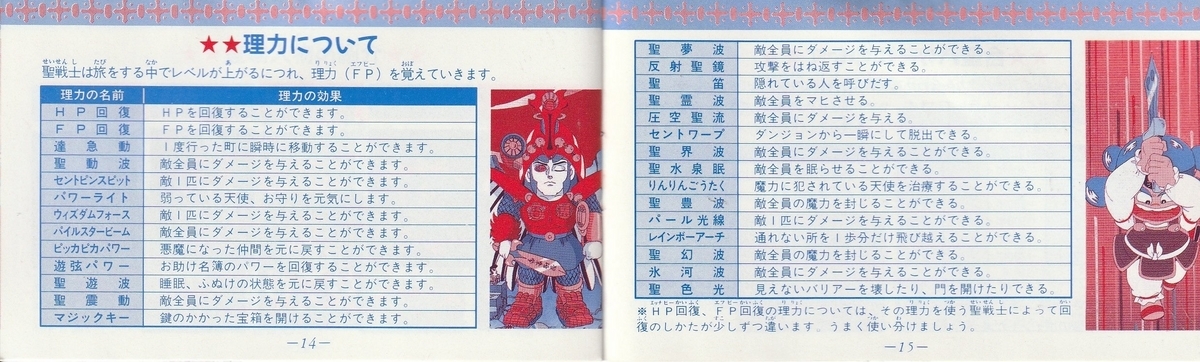 ★★理力について
聖戦士は旅をする中でレベルが上がるにつれ、理力（FP）を覚えていきます。
理力の名前 理力の効果
HP回復 HPを回復することができます。
FP回復 FPを回復することができます。
達急動 1度行った町に瞬時に移動することができます。
聖動波 敵全員にダメージを与えることができます。
セントピンスピット 敵1匹にダメージを与えることができます。
パワーライト 弱っている天使、お守りを元気にします。
ウィズダムフォース 敵1匹にダメージを与えることができます。
パイルスタービーム 敵全員にダメージを与えることができます。
ピッカピカパワー 悪魔になった仲間を元に戻すことができます。
遊弦パワー お助け名簿のパワーを回復することができます。
聖遊波 睡眠、ふぬけの状態を元に戻すことができます。
聖震動 敵全員にダメージを与えることができます。
マジックキー 鍵のかかった宝箱を開けることができます。
—14—
聖夢波 敵全員にダメージを与えることができる。
反射聖鏡 攻撃をはね返すことができる。
聖笛 隠れている人を呼びだす。
聖霊波 敵全員をマヒさせる。
圧空聖流 敵全員にダメージを与える。
セントワープ ダンジョンから一瞬にして脱出できる。
聖界波 敵全員にダメージを与えることができる。
聖水泉眠 敵全員を眠らせることができる。
りんりんごうたく 魔力に犯されている天使を治療することができる。
聖豊波 敵全員の魔力を封じることができる。
パール光線 敵1匹にダメージを与えることができる。
レインボーアーチ 通れない所を1歩分だけ飛び越えることができる。
聖幻波 敵全員の魔力を封じることができる。
氷河波 敵全員にダメージを与えることができる。
聖色光 見えないバリアーを壊したり、門を開けたりできる。
※HP回復、FP回復の理力については、その理力を使う聖戦士によって回
復のしかたが少しずつ違います。うまく使い分けましょう。
—15—